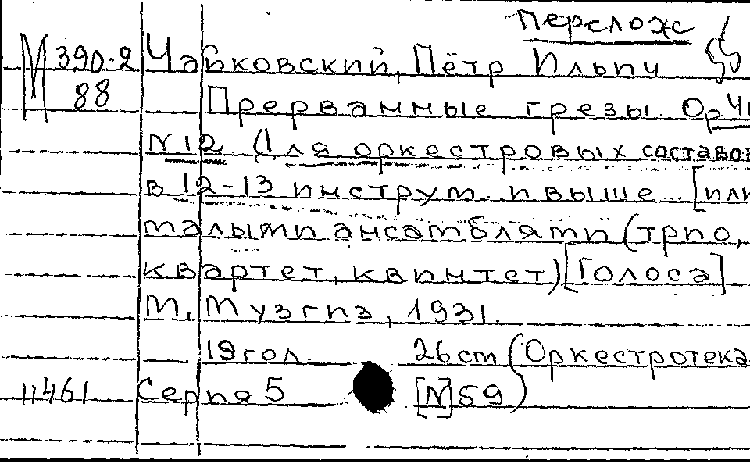 Перелож
М 390-2 Чайковский, Пётр Ильич
88 Прерванные грезы. Ор
N12 (Для оркестровых составов
в 12-13 инструм. и выше [или
малыми ансамблями (трио,
квартет, квинтет) [Голоса]
М., Музгиз, 1931.
19 гол. 26 cm (Оркестротека
11461 Серия 5 [N]59)